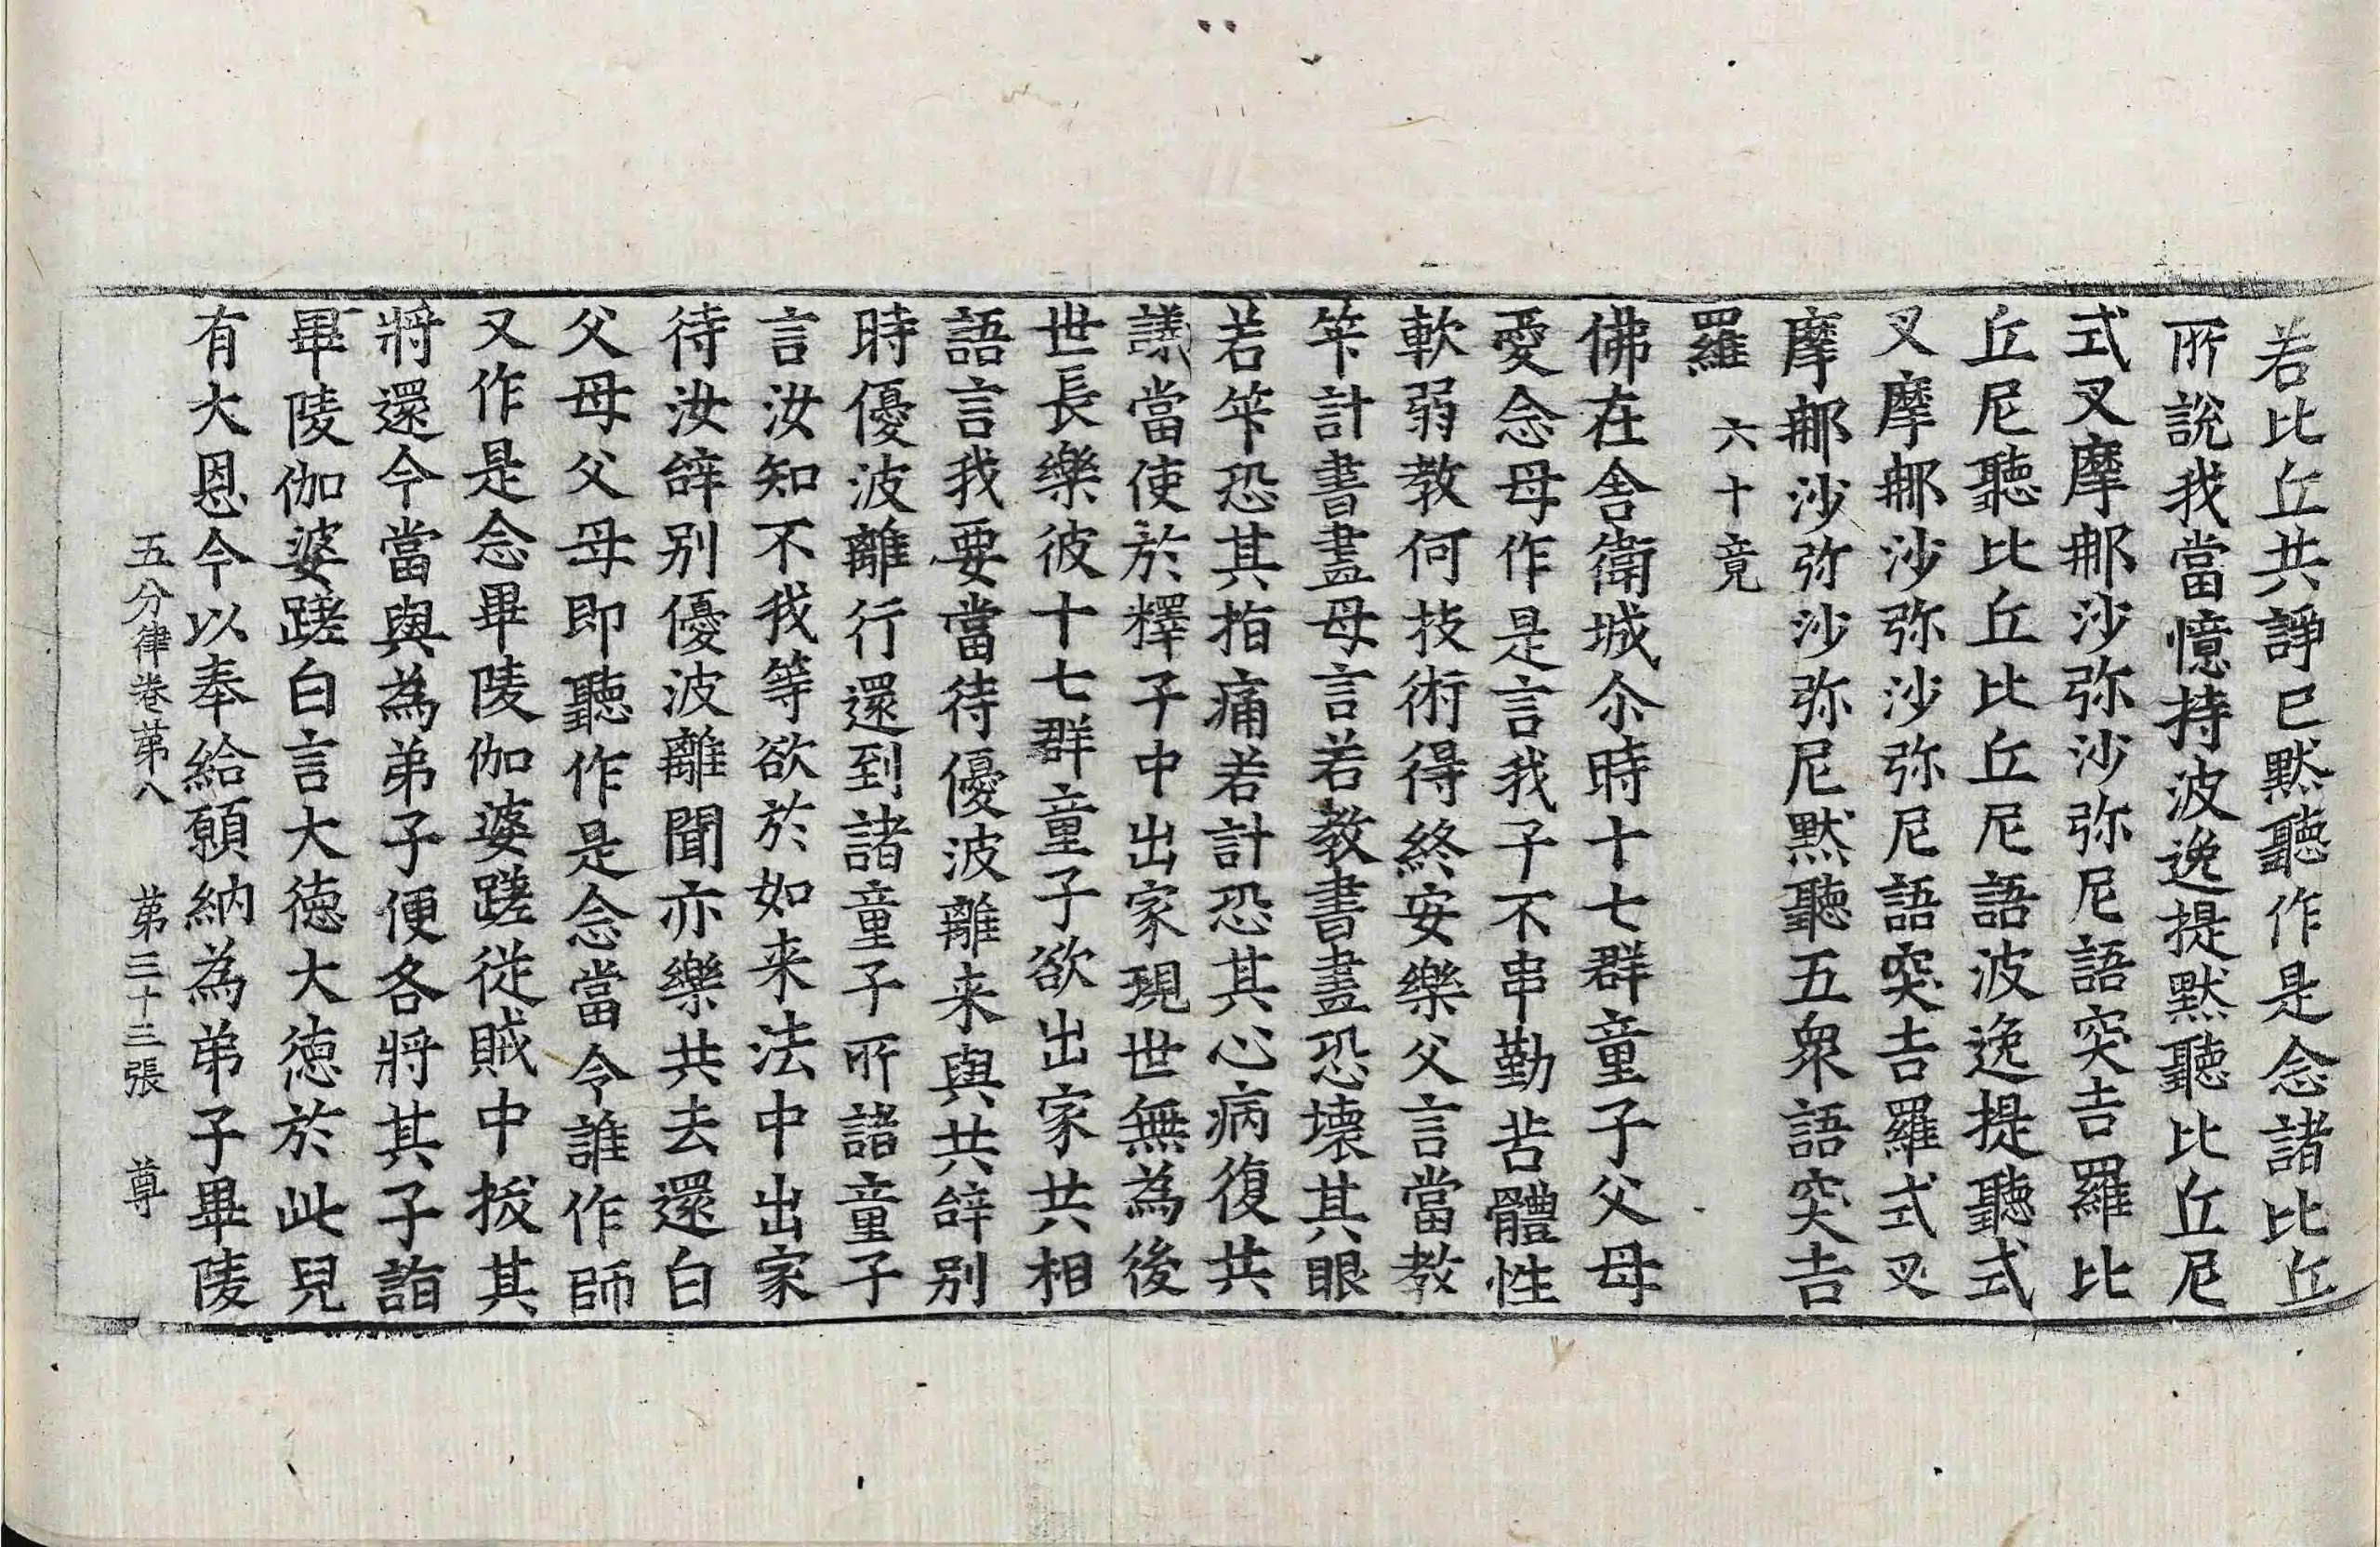 若比丘共諍已默聽作是念諸比丘
所說我當憶持波逸提默聽比丘尼
式叉摩那沙弥沙弥尼語突吉羅比
丘尼聽比丘比丘尼語波逸提聽式
叉摩那沙弥沙弥尼語突吉羅式叉
摩那沙弥沙弥尼默聽五衆語突吉
羅 六十竟
佛在舍衛城尒時十七群童子父母
愛念母作是言我子不串勤苦體性
軟弱教何技術得終安樂父言當教
笇計書畫母言若教書畫恐壞其眼
若笇恐其指痛若計恐其心病復共
議當使於釋子中出家現世無為後
世長樂彼十七群童子欲出家共相
語言我要當待優波離来與共辝别
時優波離行還到諸童子所諸童子
言汝知不我等欲於如来法中出家
待汝辝别優波離聞亦樂共去還白
父母父母即聽作是念當令誰作師
又作是念畢陵伽婆蹉従賊中拔其
將還今當與為弟子便各將其子詣
畢陵伽婆蹉白言大徳大徳於此兒
有大恩今以奉給願納為弟子畢陵
五分律卷苐八 苐三十三張 尊